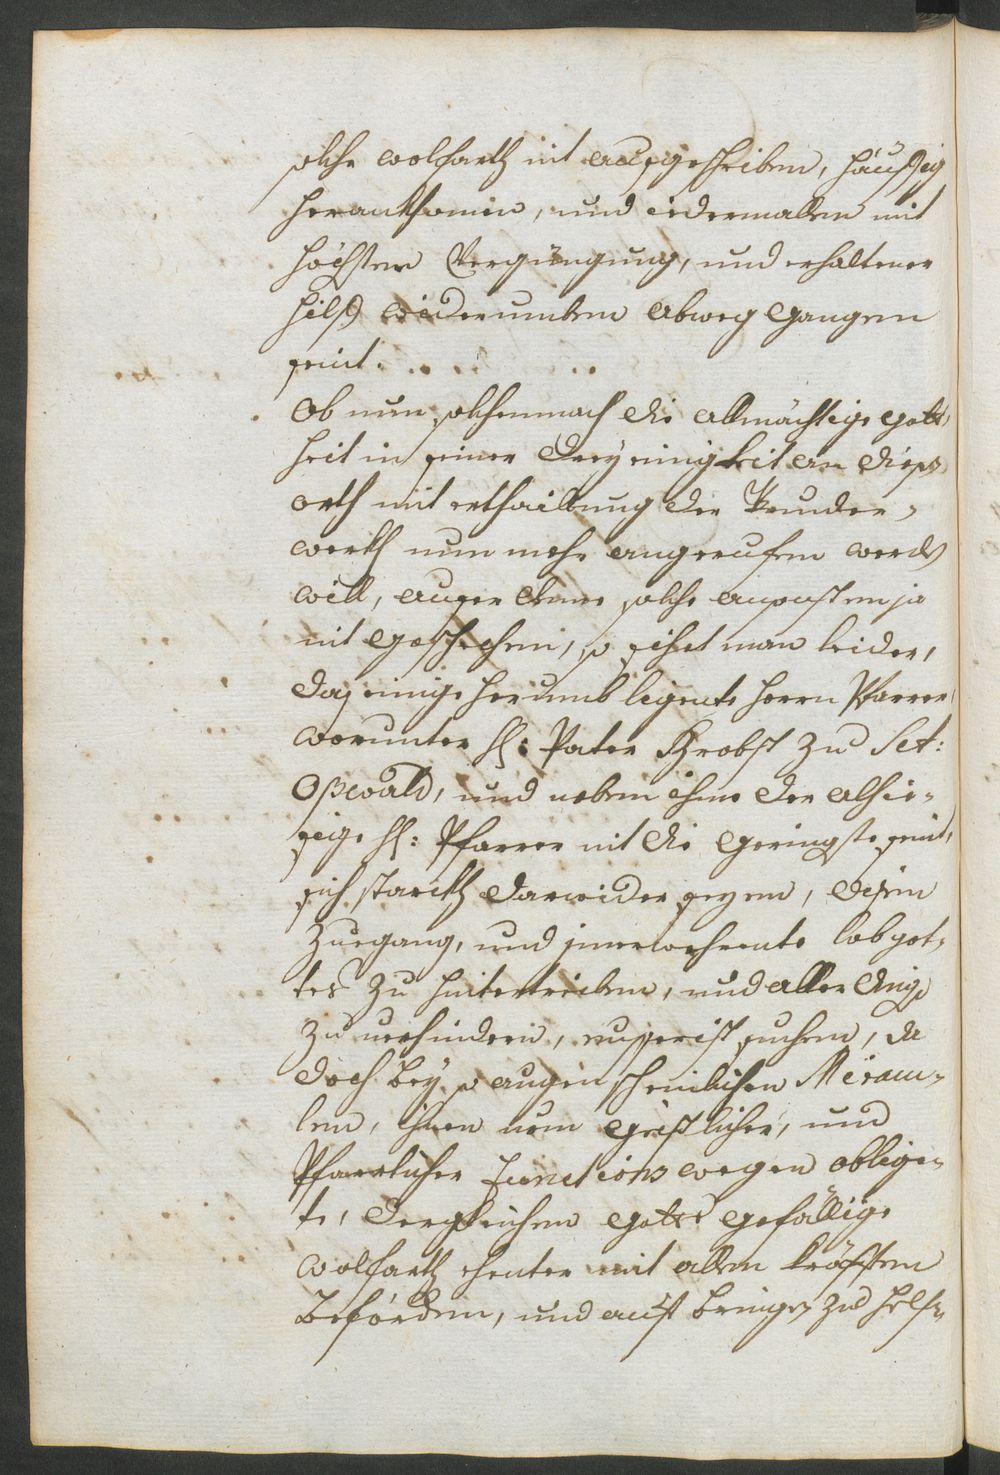 solche wolfarth nit ausgeschriben, häuffig
herankhomen, und iedermallen mit
höchsten Vergnügung, und erhaltener
hilff widerumben abweg gangen
seint.
Ob nun solchemnach die allmächtige gott,
heit in seiner Dreyeinigkeit an diesem
orth mit erthaillung der Wunder,
werkh nun mehr angeruefen werden
will, auser deme solche
nit geschehen, so sihet man leider,
das einige herumb ligente herrn Pfarrer
worunter H: Pater Probst zu Sct:
Oßwald, und neben ihme der alhie,
sige H: Pfarrer nit die geringste seint,
sich starckh darwider sezen, disen
Zuegang, und jmerwehrente lob got,
tes zu hintertreiben, und aller dings
zu verhindern, eusserist suchen, da
doch bey so augenscheinlichen Miracu,
len, ihnen von geistlicher, und
Pfarrlicher functions wegen oblige,
te, dergleichen gott gefällige
wolfarth ehenter mit allen kräfften
befördern, und auf bringen zu helfen